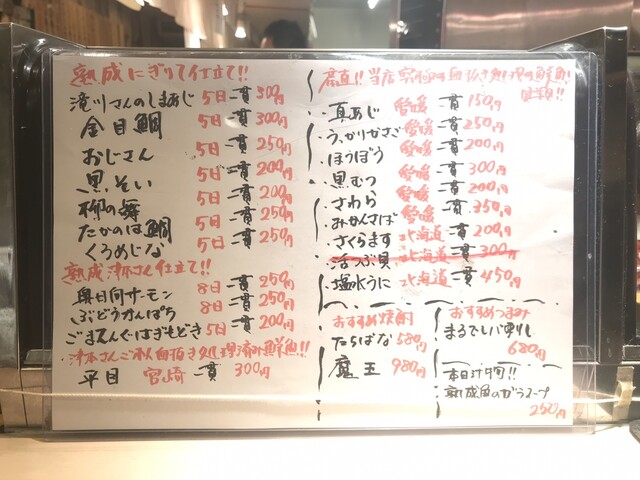 熟成にぎりて仕立て!!
滝川さんのしまあじ 5日 一貫 300円
金目鯛 5日 一貫 300円
おじさん 5日 一貫 250円
黒そい 5日 一貫 200円
柳の舞 5日 一貫 200円
たかのは鯛 5日 一貫 250円
くろめじな 5日 一貫 250円
熟成津本さん仕立て!!
奥日向サーモン 8日 一貫 250円
ぶどうかんぱち 8日 一貫 250円
ごまもんがらはぎもどき 5日 一貫 200円
津本さんご本人血抜き処理済み鮮魚!!
平目 宮崎 一貫 300円
産直!! 当店専用の血抜き処理の鮮魚!
真あじ 愛媛 一貫 150円
うっかりかさご 愛媛 一貫 250円
ほうぼう 愛媛 一貫 200円
黒むつ 愛媛 一貫 300円
さわら 愛媛 一貫 200円
みかんさば 愛媛 一貫 350円
さくらます 北海道 一貫 200円
活つぶ貝 北海道 一貫 300円
塩水うに 北海道 一貫 450円
おすすめ焼酎
たちばな 580円
魔王 980円
おすすめつまみ
まるでレバ刺し
680円
本日汁物!!
熟成魚のがらスープ
250円